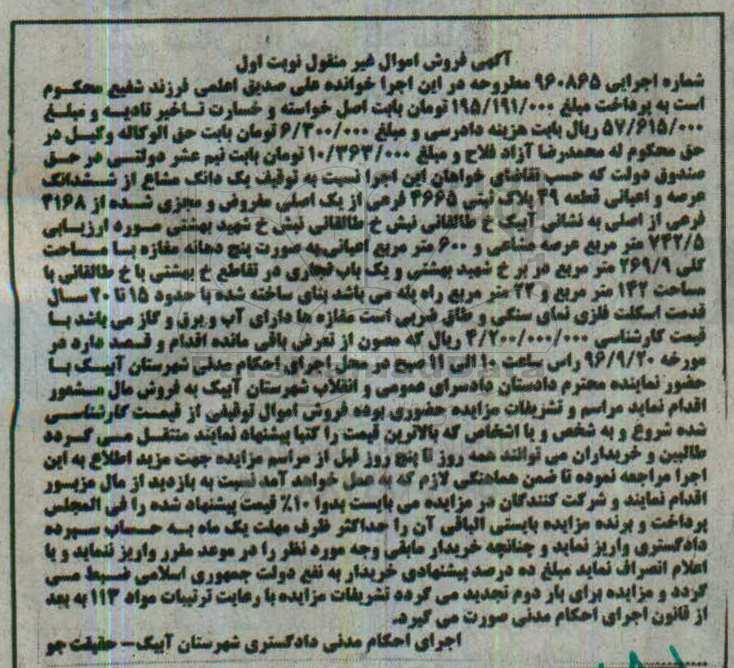 آگهی فروش اموال غیر منقول نوبت اول
شماره اجرایی ۹۶۰۸۶۵ مطروحه در این اجرا خوانده علی صدیق اعلمی فرزند شفیع محکوم
است به پرداخت مبلغ ۱۹۵/۱۹۱/۰۰۰ تومان بابت اصل خواسته و خسارت تاخیر تادیه و مبلغ
۵۷/۶۱۵/۰۰۰ ریال بابت هزینه دادرسی و مبلغ ۶/۳۰۰/۰۰۰ تومان بابت حق الوکاله وکیل در
حق محکوم له محمدرضا آزاد فلاح و مبلغ ۱۰/۳۶۳/۰۰۰ تومان بابت نیم عشر دولتی در حق
صندوق دولت که حسب تقاضای خواهان این اجرا نسبت به توقیف یک دانگ مشاع از ششدانگ
عرصه و اعیانی قطعه ۴۹ پلاک ثبتی ۴۶۶۵ فرعی از یک اصلی مفروض و مجزی شده از ۴۱۶۸
فرعی از اصلی به نشانی آبیک خ طالقانی نبش خ طالقانی نبش خ شهید بهشتی مورد ارزیابی
۷۴۲/۵ متر مربع عرصه مشاعی و ۶۰۰ متر مربع اعیانی به صورت پنج دهانه مغازه با مساحت
کلی ۲۶۹/۹ متر مربع در بر خ شهید بهشتی و یک باب تجاری در تقاطع خ بهشتی با خ طالقانی با
مساحت ۱۴۲ متر مربع و ۲۳ متر مربع راه پله می باشد بنای ساخته شده با حدود ۱۵ تا ۲۰ سال
قدمت اسکلت فلزی نمای سنگی و طاق ضربی است مغازه ها دارای آب و برق و گاز می باشد با
قیمت کارشناسی ۴/۲۰۰/۰۰۰/۰۰۰ ریال که مصون از تعرض باقی مانده اقدام و قصد دارد در
مورخه ۹۶/۹/۲۰ راس ساعت ۱۰ الی ۱۱ صبح در محل اجرای احکام مدنی شهرستان آبیک با
حضور نماینده محترم دادستان دادسرای عمومی و انقلاب شهرستان آبیک به فروش مال مذکور
اقدام نماید مراسم و تشریفات مزایده حضوری بوده فروش اموال توقیفی از قیمت کارشناسی
شده شروع و به شخص و یا اشخاص که بالاترین قیمت را کتبا پیشنهاد نمایند منتقل می گردد
طالبین و خریداران می توانند همه روز تا پنج روز قبل از مراسم مزایده جهت مزید اطلاع به این
اجرا مراجعه نموده تا ضمن هماهنگی لازم که به عمل خواهد آمد نسبت به بازدید از مال مزبور
اقدام نمایند و شرکت کنندگان در مزایده می بایست بدوا ۱۰٪ قیمت پیشنهاد شده را فی المجلس
پرداخت و برنده مزایده بایستی الباقی آن را حداکثر ظرف مهلت یک ماه به حساب سپرده
دادگستری واریز نماید و چنانچه خریدار مابقی وجه مورد نظر را در موعد مقرر واریز ننماید و یا
اعلام انصراف نماید مبلغ ده درصد پیشنهادی خریدار به نفع دولت جمهوری اسلامی ضبط می
گردد و مزایده برای بار دوم تجدید می گردد تشریفات مزایده با رعایت ترتیبات مواد ۱۱۳ به بعد
از قانون اجرای احکام مدنی صورت می گیرد.
اجرای احکام مدنی دادگستری شهرستان آبیک – حقیقت جو